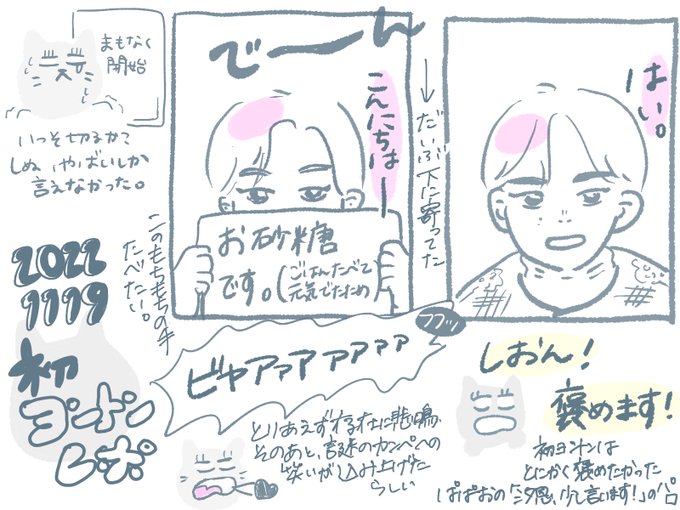 まもなく
開始
いっそ切るか?
しぬ、やばいしか
言えなかった。
でーーん
こんにちはー
お砂糖
です。(ごはんたべて
元気でたため)
→だいぶ下に寄ってた
はい。
このもちもちの手
たべたい。
2022
1119
初
ヨントン
レポ
ビャアァァァァァァ
フフッ
とりあえず存在に悲鳴、
そのあと、謎のカンペへの
笑いが込み上げた
らしい
しおん!
褒めます!
初ヨントンは
とにかく褒めたかった
ぱぱおの「汐恩、少し言います!」のパロ